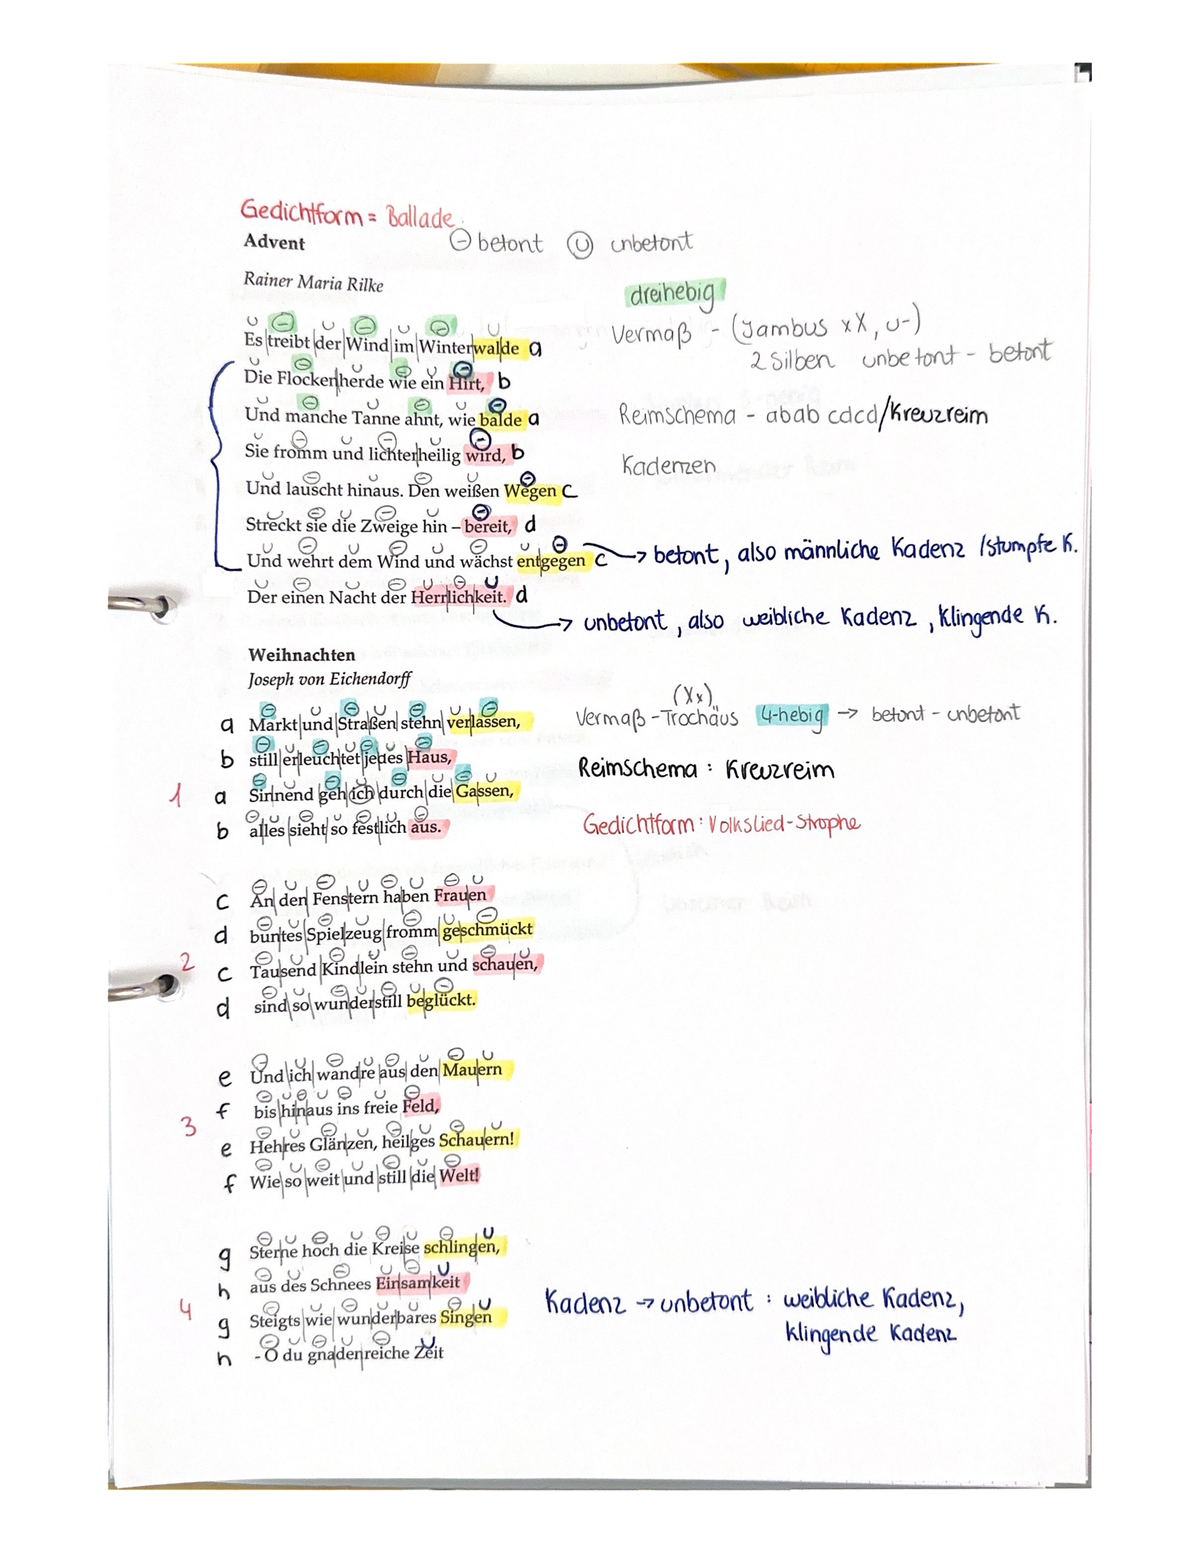 Gedichtform = Ballade.
Advent
⊖ betont Ⓤ unbetont
Rainer Maria Rilke
dreihebig
Vermaß - (Jambus xX, ∪-)
2 Silben unbetont - betont
Es treibt der Wind im Winterwalde a
Die Flockenherde wie ein Hirt, b
Und manche Tanne ahnt, wie balde a
Reimschema - abab cdcd/Kreuzreim
Sie fromm und lichterheilig wird, b
Kadenzen
Und lauscht hinaus. Den weißen Wegen c
Streckt sie die Zweige hin – bereit, d
Und wehrt dem Wind und wächst entgegen c → betont, also männliche Kadenz /stumpfe K.
Der einen Nacht der Herrlichkeit. d
→ unbetont, also weibliche Kadenz, klingende K.
Weihnachten
Joseph von Eichendorff
(Xx)
a Markt und Straßen stehn verlassen,
Vermaß - Trochäus 4-hebig → betont - unbetont
b still erleuchtet jedes Haus,
Reimschema : Kreuzreim
1 a Sinnend geh ich durch die Gassen,
b alles sieht so festlich aus.
Gedichtform : Volkslied-Strophe
c An den Fenstern haben Frauen
d buntes Spielzeug fromm geschmückt
2 c Tausend Kindlein stehn und schauen,
d sind so wunderstill beglückt.
e Und ich wandre aus den Mauern
f bis hinaus ins freie Feld,
3 e Hehres Glänzen, heilges Schauern!
f Wie so weit und still die Welt!
g Sterne hoch die Kreise schlingen,
h aus des Schnees Einsamkeit
Kadenz → unbetont : weibliche Kadenz,
4 g Steigts wie wunderbares Singen
klingende Kadenz
h - O du gnadenreiche Zeit